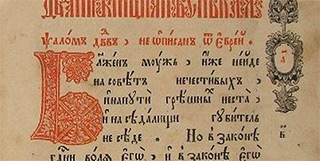 Ѱалом дв҃дъ , не ѡписан ѿ Еврей
Блажен моужь , иже нейде
на совѣт нечестивых ,
и напꙋти грѣшных неста ,
и на сѣдалищи гꙋбитель
не сѣде . Но в законѣ
гд҃ни волѧ єгѡ , и в законѣ